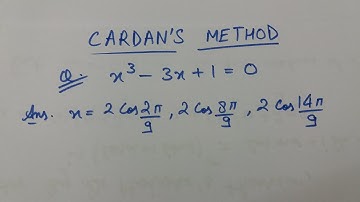 CARDAN'S METHOD
Q. x³ − 3x + 1 = 0
Ans. x = 2 Cos 2π/9, 2 Cos 8π/9, 2 Cos 14π/9